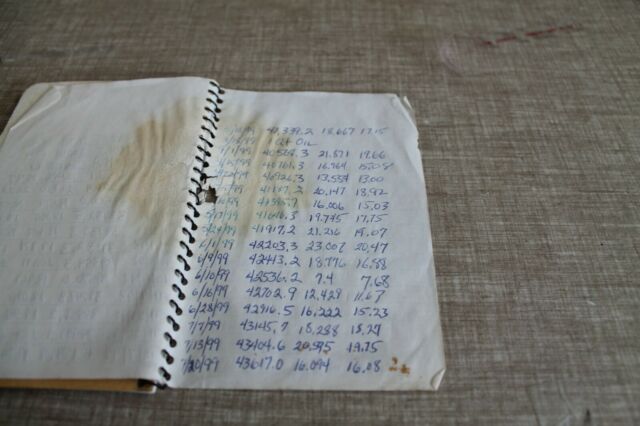 18.667 17.15
1 Qt OIL
40567.3 21.871 19.66
40761.3 16.964 15.08
40926.3 13.557 13.00
41187.2 20.147 18.92
16.006 15.03
19.745 17.75
41917.2 21.216 19.07
6/1/99 42203.3 23.007 20.47
6/9/99 42413.2 18.776 16.88
6/10/99 42536.2 7.4 7.68
6/16/99 42702.9 12.429 11.67
6/28/99 42916.5 16.222 15.23
7/7/99 43145.7 18.238
7/13/99 43404.6 20.595 19.75
7/20/99 43617.0 16.094 16.08